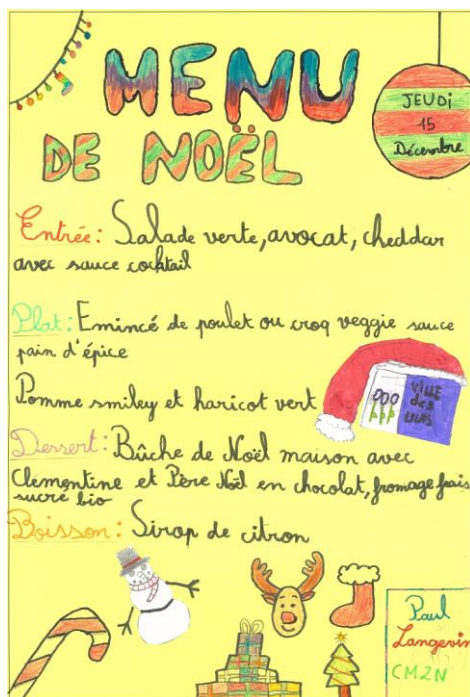 MENU
DE NOËL
JEUDi
15
Décembre
Entrée: Salade verte, avocat, cheddar
avec sauce cocktail
Plat: Emincé de poulet ou croq veggie sauce
pain d'épice
Pomme smiley et haricot vert
VILLE
des
LILAS
Dessert: Bûche de Noël maison avec
Clementine et Père Noël en chocolat, fromage frais
sucré bio
Boisson: Sirop de citron
Paul
Langevin
CM2N